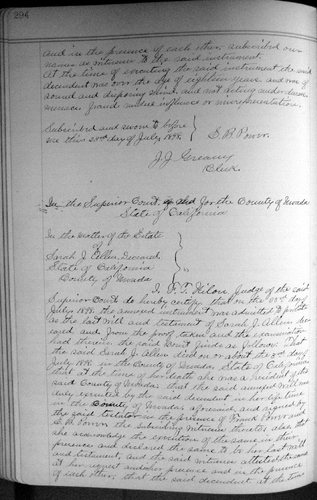 294
and in the presence of each other, subscribed our
name as witness to the said instrument.
At the time of executing the said instrument the said
decedent was over the age of eighteen years and was of
sound and disposing mind and not acting under duress
menace fraud, undue influence or misrepresentation.
Subscribed and sworn to before
me this day of July, 1898. S. R. Power.
J. J. Greany
Clerk.
In the Superior Court, in and for the County of Nevada
State of California
In the matter of the Estate
of
Sarah J. Allen, Deceased
State of California
County of Nevada
I, F. T. Nilon Judge of the said
Superior Court do hereby certify that on the day
July 1898. the annexed instrument was admitted to probate
as the last will and testament of Sarah J. Allen
and from the proof taken and the examination
had therein the said Court finds as follows: That
the said Sarah J. Allen died on or about the day
July 1898. in the County of Nevada, State of California
that at the time of her death she was a resident of the
said County of Nevada, that the said annexed will was
duly executed by the said decedent in her life time
in the County, of Nevada aforesaid, and signed by
the said testator in the presence of Frank Power and
S. R. Power the subscribing witnesses thereto, also that
she acknowledge the execution of the same in their
presence, and declared the same to be her last will
and testament, and the said witnesses attested the same
at her request and in her presence and in the presence
of each other, that the said decedent at the time